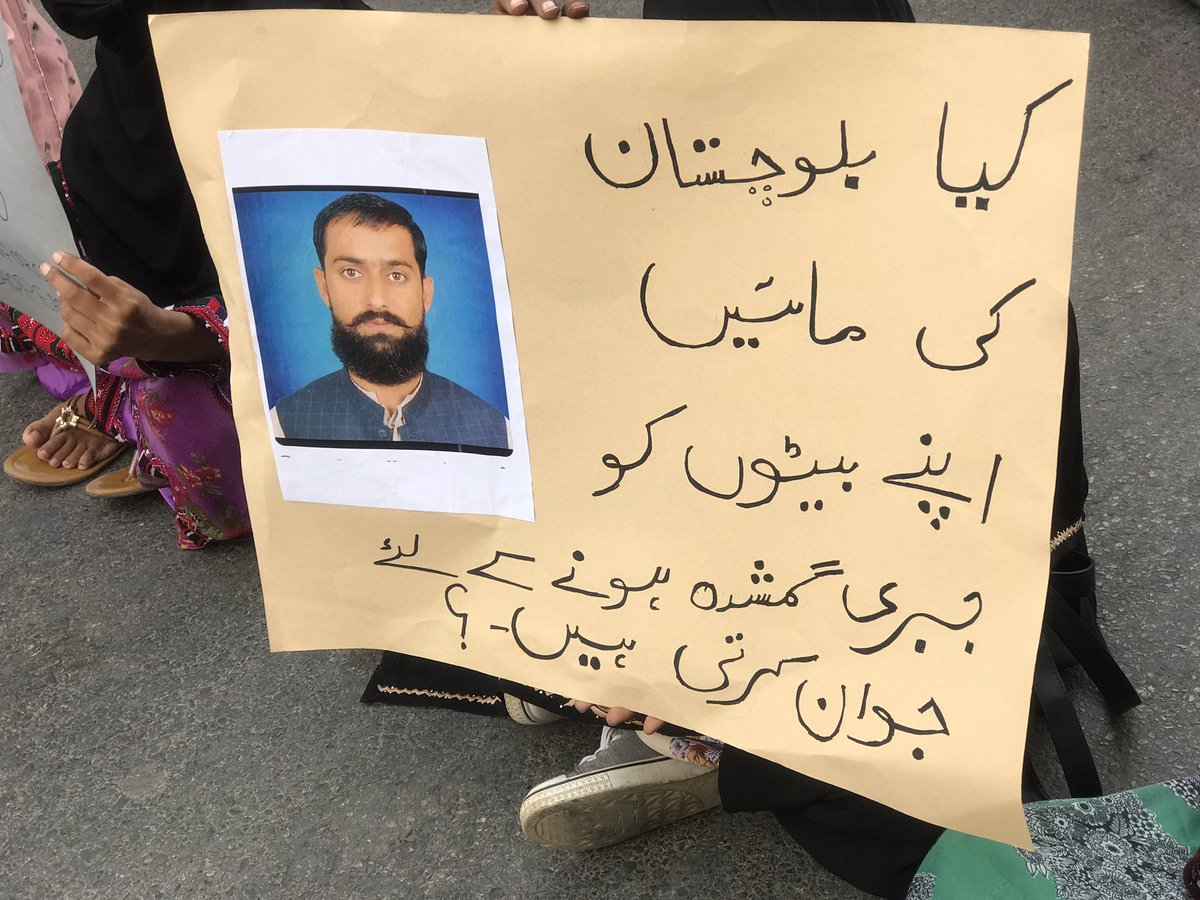 کیا بلوچستان
کی مائیں
اپنے بیٹوں کو
جبری گمشدہ ہونے کے لئے
جوان کرتی ہیں-؟